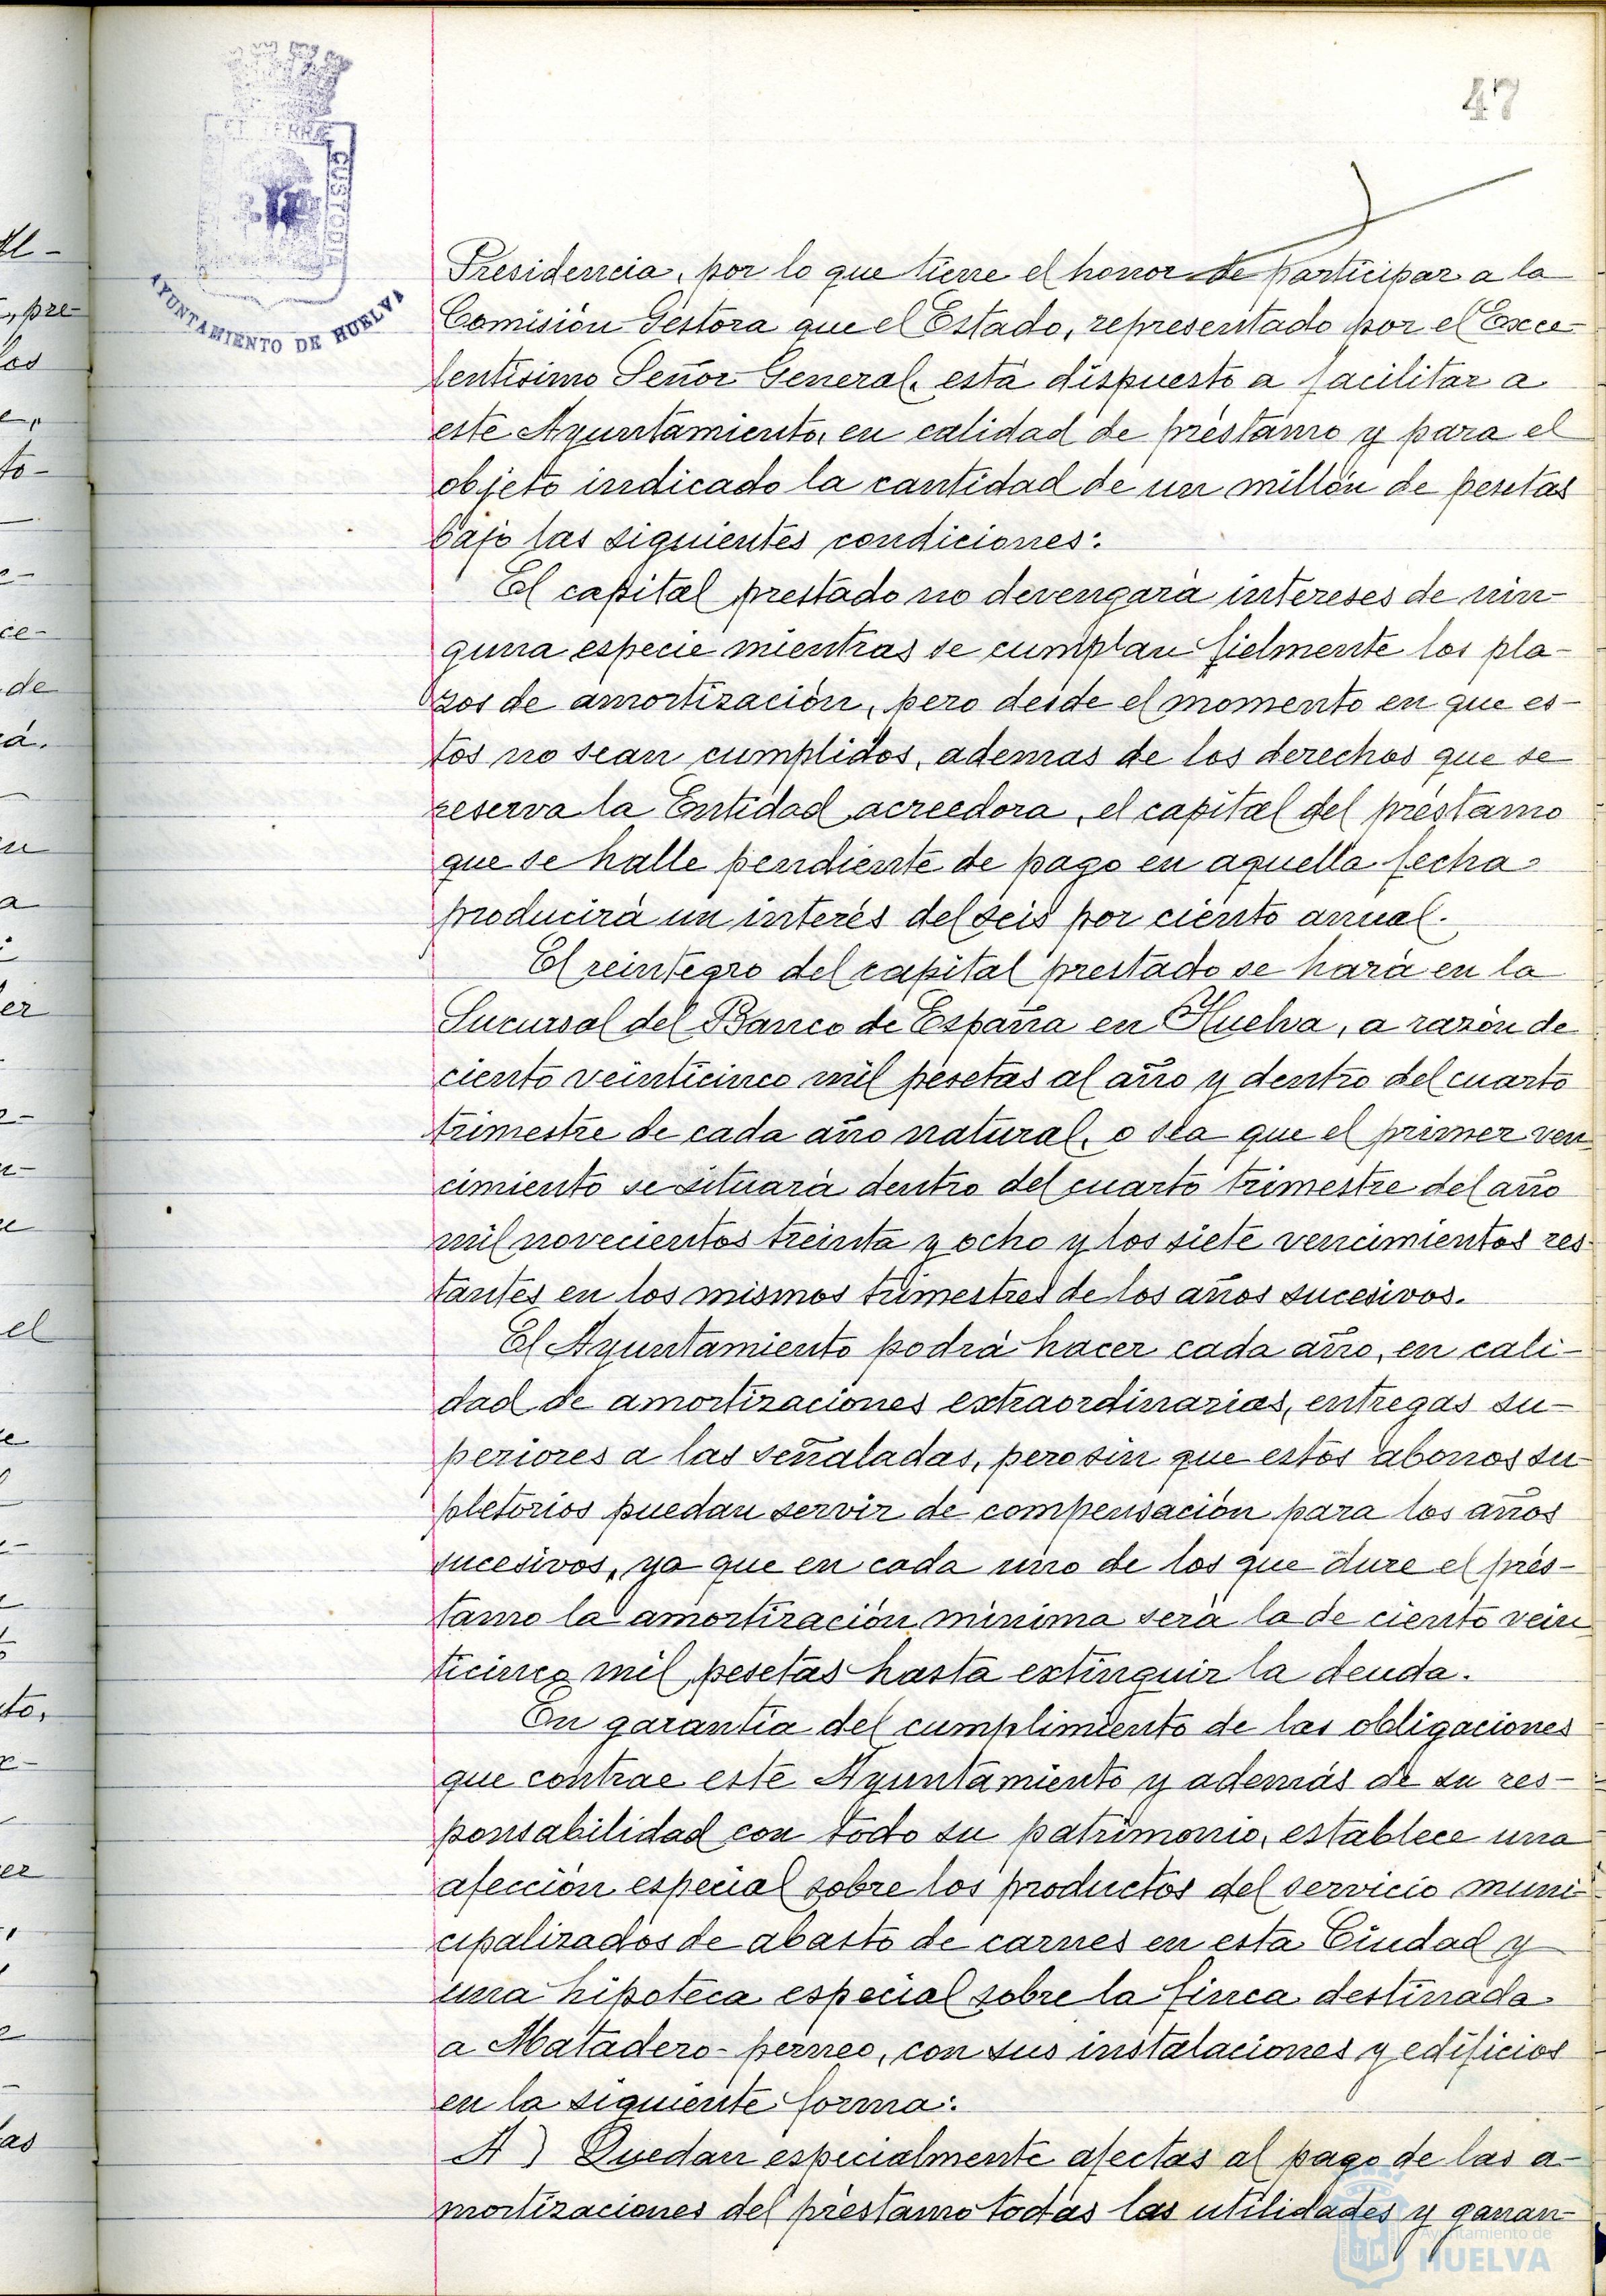 47
ET TERRE CUSTODIT
AYUNTAMIENTO DE HUELVA
Presidencia, por lo que tiene el honor de participar a la
Comisión Gestora que el Estado, representado por el Exce-
lentísimo Señor General, está dispuesto a facilitar a
este Ayuntamiento, en calidad de préstamo y para el
objeto indicado la cantidad de un millón de pesetas
bajo las siguientes condiciones:
El capital prestado no devengará intereses de nin-
guna especie mientras se cumplan fielmente los pla-
zos de amortización, pero desde el momento en que es-
tos no sean cumplidos, ademas de los derechos que se
reserva la Entidad acreedora, el capital del préstamo
que se halle pendiente de pago en aquella fecha
producirá un interés del seis por ciento anual.
El reintegro del capital prestado se hará en la
Sucursal del Banco de España en Huelva, a razón de
ciento veinticinco mil pesetas al año y dentro del cuarto
trimestre de cada año natural, o sea que el primer ven
cimiento se situará dentro del cuarto trimestre del año
mil novecientos treinta y ocho y los siete vencimientos res-
tantes en los mismos trimestres de los años sucesivos.
El Ayuntamiento podrá hacer cada año, en cali-
dad de amortizaciones extraordinarias, entregas su-
periores a las señaladas, pero sin que estos abonos su-
pletorios puedan servir de compensación para los años
sucesivos, ya que en cada uno de los que dure el prés-
tamo la amortización mínima será la de ciento vein
ticinco mil pesetas hasta extinguir la deuda.
En garantía del cumplimiento de las obligaciones
que contrae este Ayuntamiento y además de su res-
ponsabilidad con todo su patrimonio, establece una
afección especial sobre los productos del servicio muni-
cipalizados de abasto de carnes en esta Ciudad y
una hipoteca especial sobre la finca destinada
a Matadero-perneo, con sus instalaciones y edificios
en la siguiente forma:
A) Quedan especialmente afectas al pago de las a-
mortizaciones del préstamo todas las utilidades y ganan-
Ayuntamiento de
HUELVA